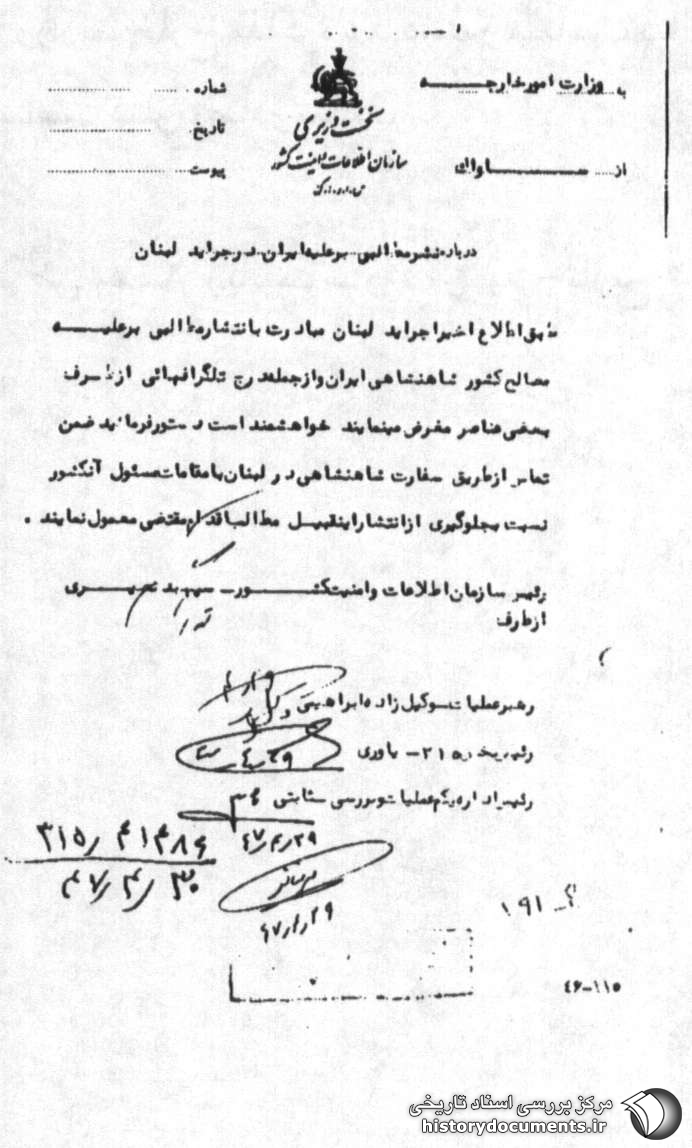 به وزارت امور خارجه
از ساواک
نخست وزیری
سازمان اطلاعات و امنیت کشور
س.ا.و.ا.ک
شماره
تاریخ
پیوست
درباره نشر مطالبی برعلیه ایران در جراید لبنان
طبق اطلاع اخیرا جراید لبنان مبادرت بانتشار مطالبی برعلیه
مصالح کشور شاهنشاهی ایران و از جمله درج تلگرافهائی از طرف
بعضی عناصر مغرض مینمایند خواهشمند است دستور فرمائید ضمن
تماس از طریق سفارت شاهنشاهی در لبنان با مقامات مسئول آنکشور
نسبت بجلوگیری از انتشار اینقبیل مطالب اقدام مقتضی معمول نمایند .
رئیس سازمان اطلاعات و امنیت کشور - سپهبد نصیری
از طرف
رهبر عملیات - وکیل زاده ابراهیمی
رئیس بخش ۳۱۵ - یاوری
رئیس اداره یکم عملیات و بررسی ثابتی
۴۷/۴/۲۹
۳۱۵/۴۱۴۸۶
۴۷/۴/۳۰
۴۷/۴/۲۹
۱۹۱
۴۶-۱۱۵
مرکز بررسی اسناد تاریخی
historydocuments.ir